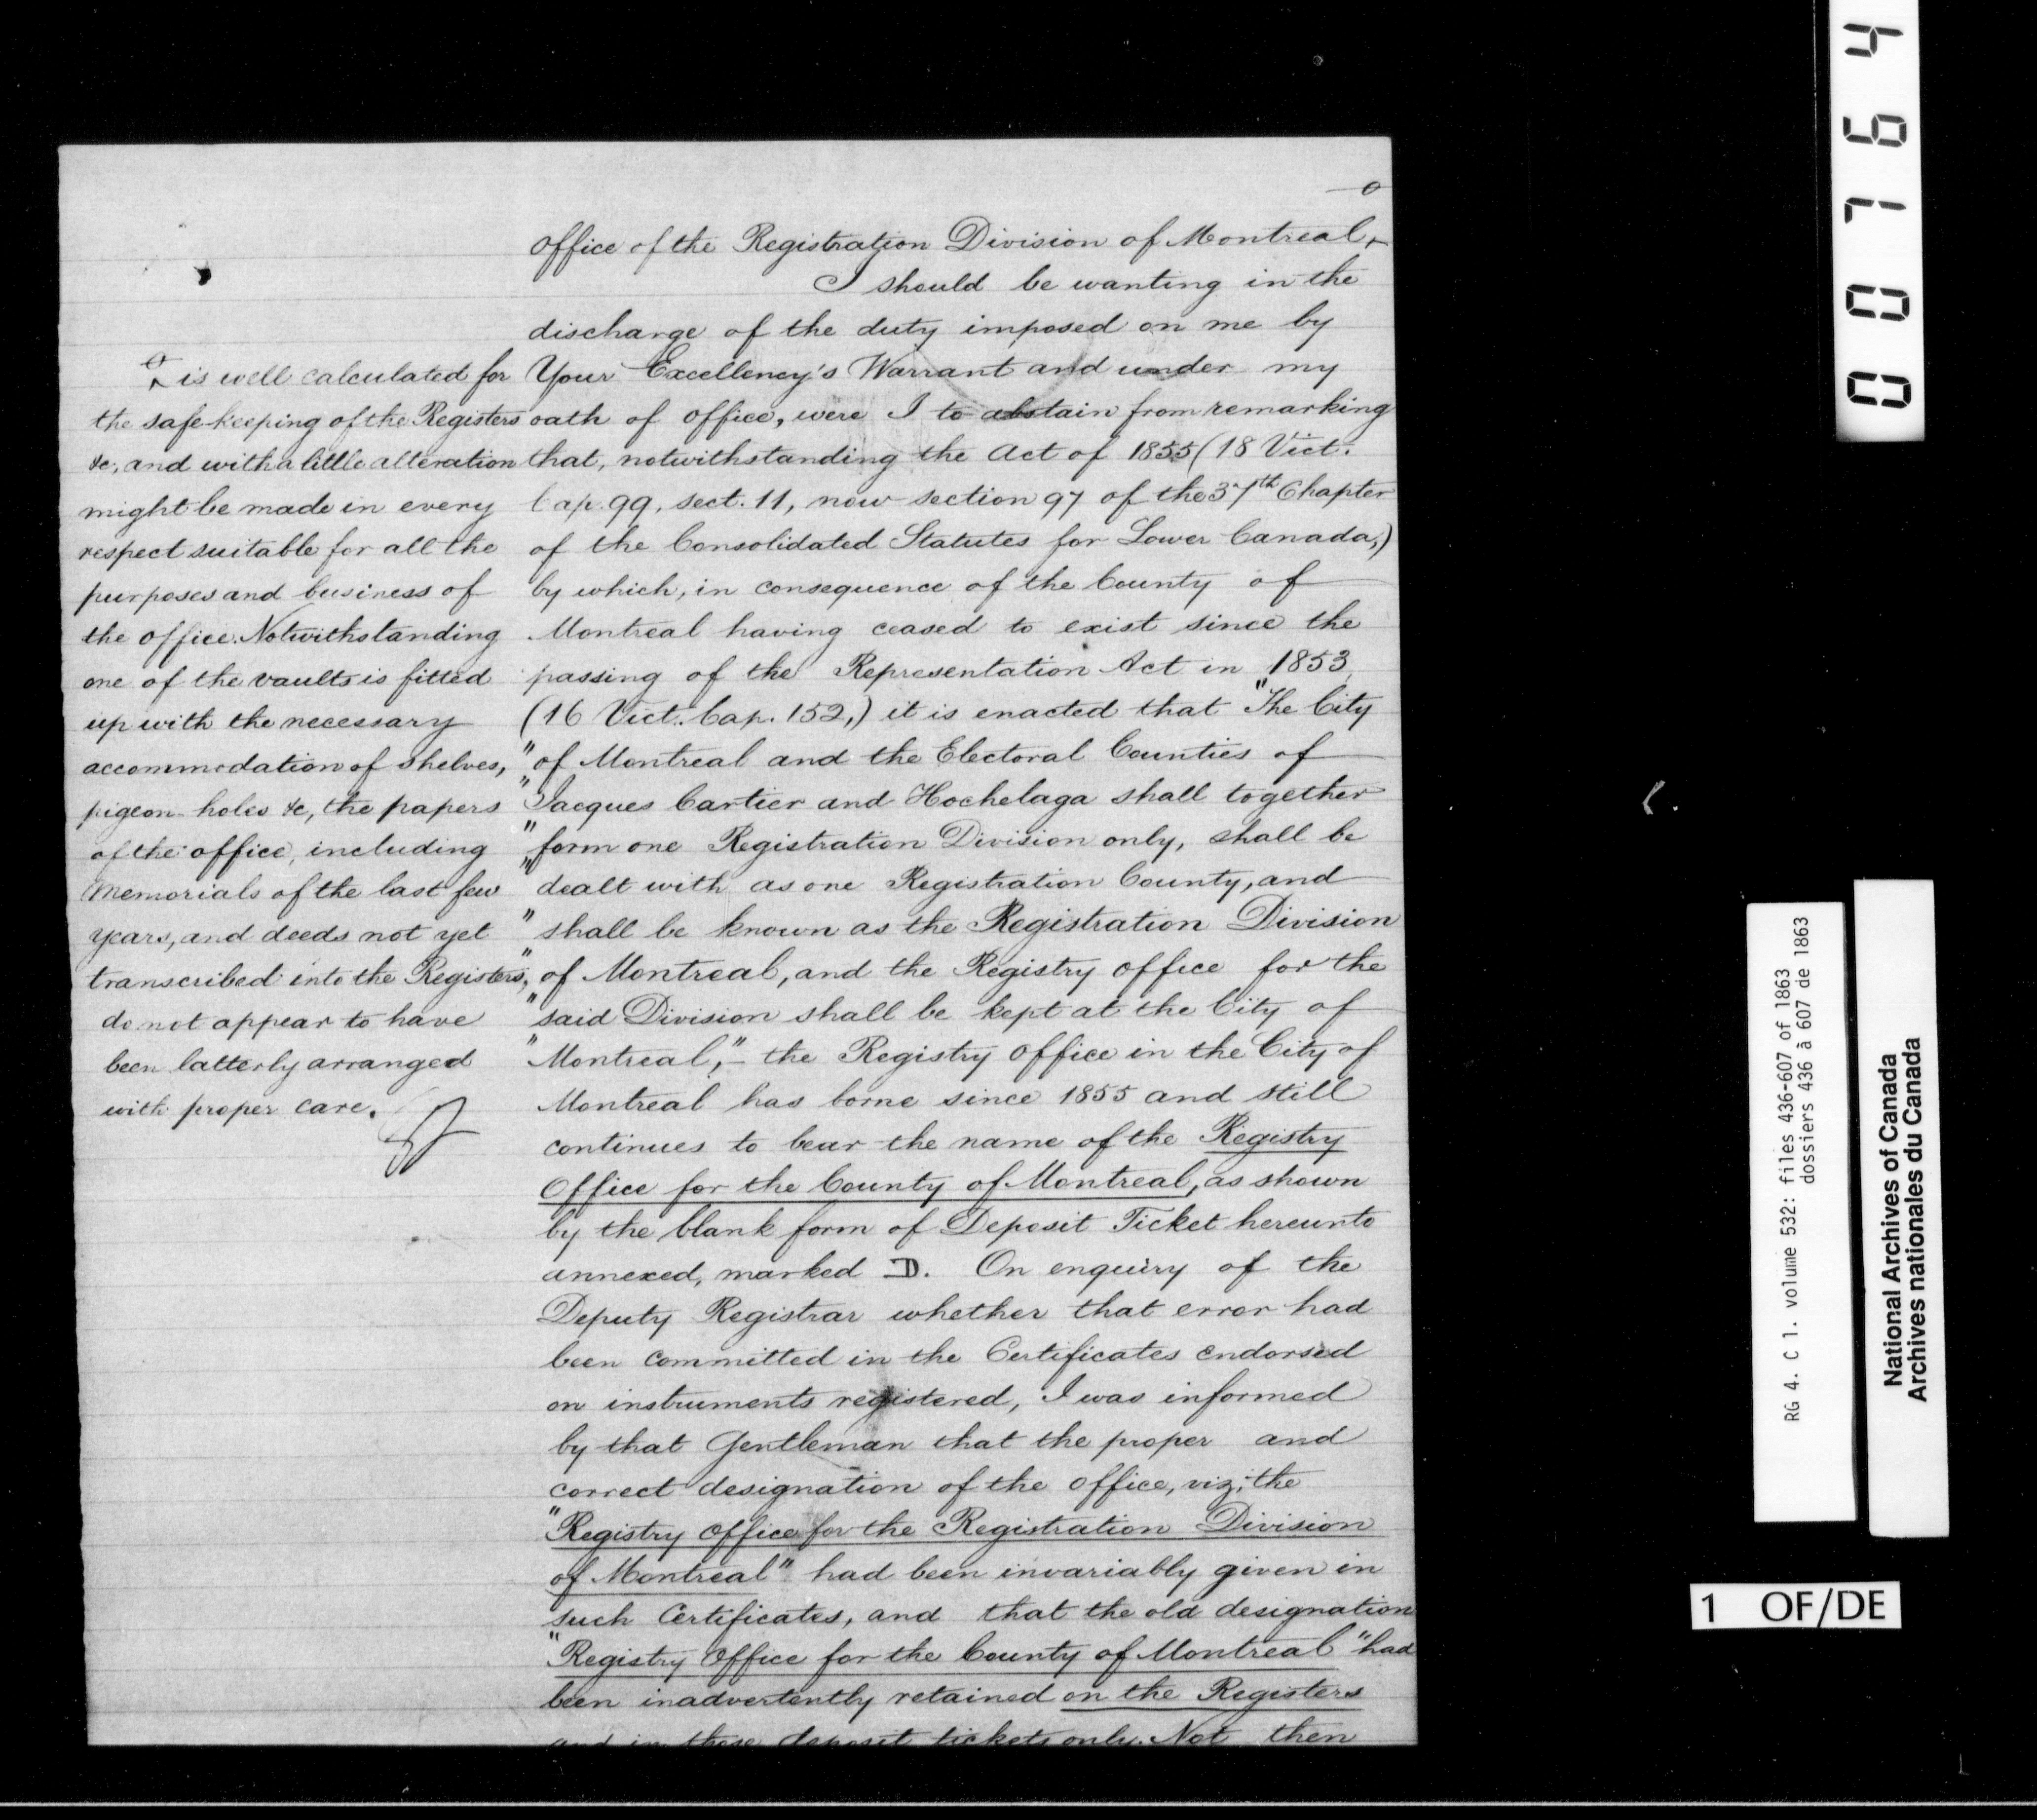 office of the Registration Division of Montreal,
I should be wanting in the
discharge of the duty imposed on me by
Your Excellency's Warrant and under my
oath of office, were I to abstain from remarking
that, notwithstanding the Act of 1855 (18 Vict.
Cap. 99, sect. 11, now section 97 of the 37th Chapter
of the Consolidated Statutes for Lower Canada,)
by which, in consequence of the County of
Montreal having ceased to exist since the
passing of the Representation Act in 1853,
(16 Vict. Cap. 152,) it is enacted that "The City
"of Montreal and the Electoral Counties of
"Jacques Cartier and Hochelaga shall together
"form one Registration Division only, shall be
"dealt with as one Registration County, and
"shall be known as the Registration Division
"of Montreal, and the Registry office for the
"said Division shall be kept at the City of
"Montreal," - the Registry office in the City of
Montreal has borne since 1855 and still
continues to bear the name of the Registry
Office for the County of Montreal, as shown
by the blank form of Deposit Ticket hereunto
annexed, marked D. On enquiry of the
Deputy Registrar whether that error had
been committed in the Certificates endorsed
on instruments registered, I was informed
by that Gentleman that the proper and
correct designation of the office, viz; the
"Registry office for the Registration Division
of Montreal" had been invariably given in
such Certificates, and that the old designation
"Registry Office for the County of Montreal" had
been inadvertently retained on the Registers
and in these deposit tickets only. Not then
is well calculated for
the safe-keeping of the Registers
&c, and with a little alteration
might be made in every
respect suitable for all the
purposes and business of
the office. Notwithstanding
one of the vaults is fitted
up with the necessary
accommodation of shelves,
pigeon-holes &c, the papers
of the office, including
Memorials of the last few
years, and deeds not yet
transcribed into the Registers,
do not appear to have
been latterly arranged
with proper care.
00764
RG 4. C 1. volume 532: files 436-607 of 1863
dossiers 436 à 607 de 1863
National Archives of Canada
Archives nationales du Canada
1 OF/DE